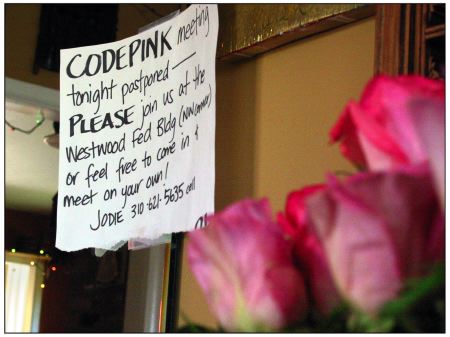 CODEPINK meeting
tonight postponed —
PLEASE join us at the
Westwood Fed Bldg (NW corner)
or feel free to come in &
meet on your own!
JODIE 310·621·5635 cell